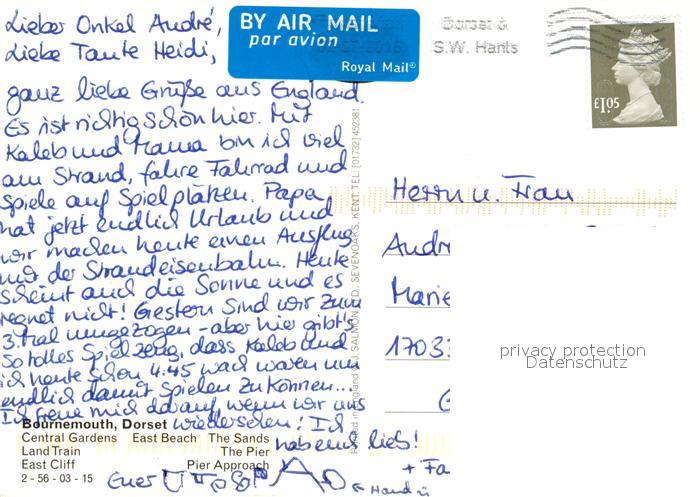 Lieber Onkel André,
Liebe Tante Heidi,
ganz liebe Grüße aus England.
Es ist richtig schön hier. Mit
Kaleb und Mama bin ich viel
am Strand, fahre Fahrrad und
spiele auf Spielplätzen. Papa
hat jetzt endlich Urlaub und
wir machen heute einen Ausflug
mit der Strandeisenbahn. Heute
scheint auch die Sonne und es
regnet nicht! Gestern sind wir zum
3. Mal umgezogen - aber hier gibt's
so tolles Spielzeug, dass Kaleb und
ich heute schon 4.45 wach waren um
endlich damit spielen zu können...
Ich freue mich darauf, wenn wir uns
wiedersehen! Ich
hab euch lieb!
Euer
+ Fa
BY AIR MAIL
par avion
Royal Mail®
Dorset &
S.W. Hants
£1.05
Printed in England J. SALMON LTD., SEVENOAKS, KENT. TEL: [01732] 452381
Herrn u. Frau
Andr
Marie
1703
privacy protection
Datenschutz
Bournemouth, Dorset
Central Gardens East Beach The Sands
Land Train The Pier
East Cliff Pier Approach
2 - 56 - 03 - 15